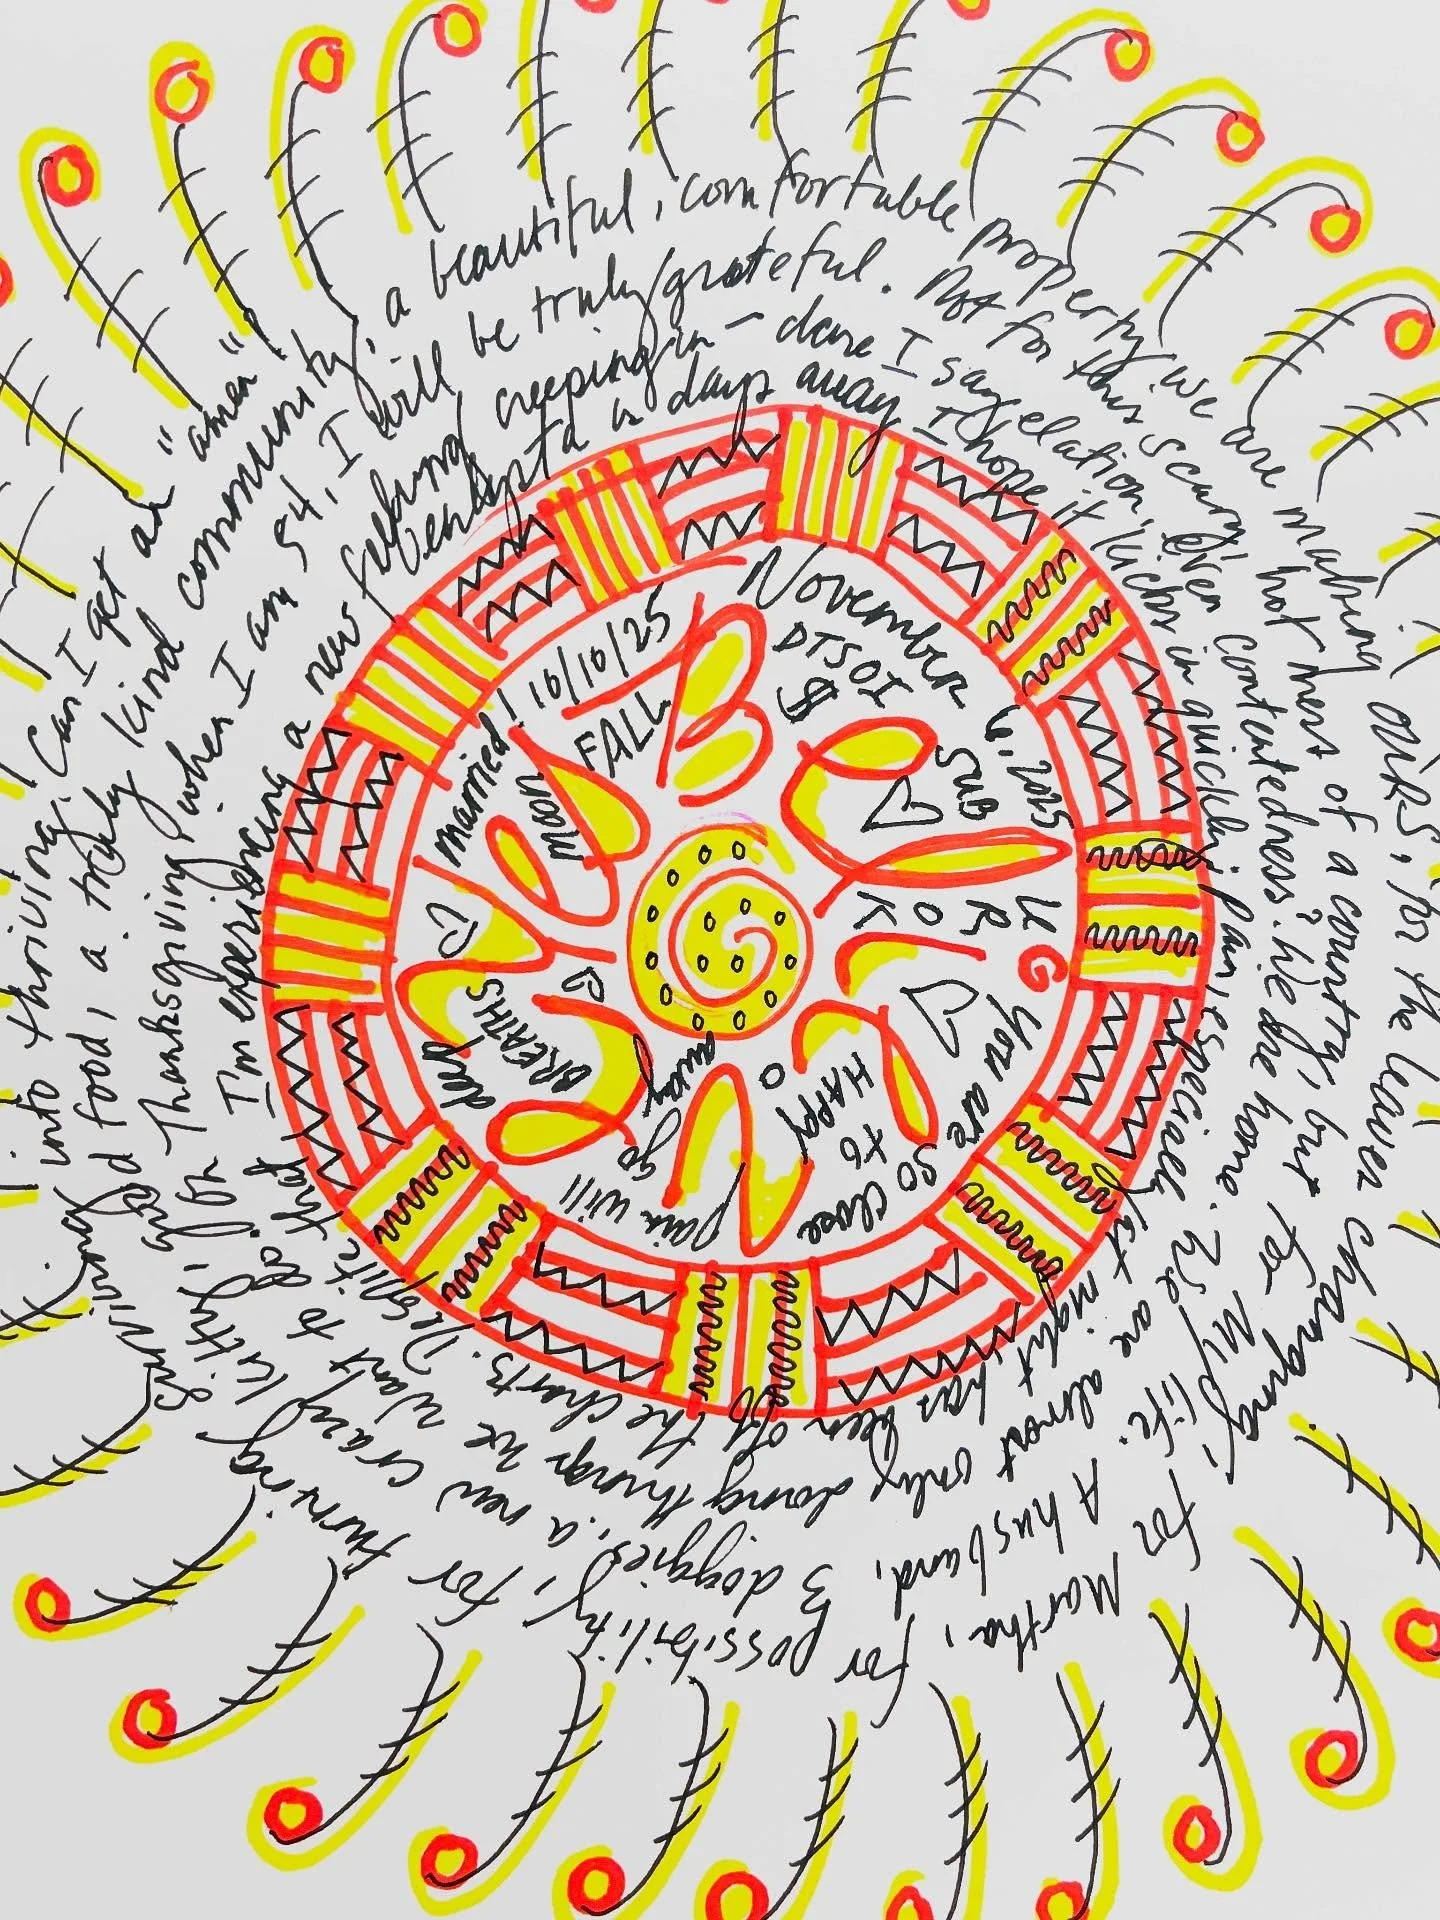 November 6, 2025
DTSOI
$
SUB
U R
O
K
you are
so close
to
HAPPY
pain will
go
away
deep
BREATHS
married! 10/10/25
moon
FALL
a days away. I hope it kicks in quickly, pain, especially last night has been off the charts. Despite that
I'm experiencing a new feeling creeping in – dare I say elation, even contentedness? We are home. We are almost only doing things we want to do. For
Thanksgiving, when I am 54, I will be truly grateful. Not for this scary hot mess of a country, but for My life. A husband, 3 doggies, a new crazy kitty, good
food, a truly kind community, a beautiful, comfortable property we are making OURS, for the leaves changing, for Martha, for possibility, for turning surviving
into thriving. Can I get an "amen"